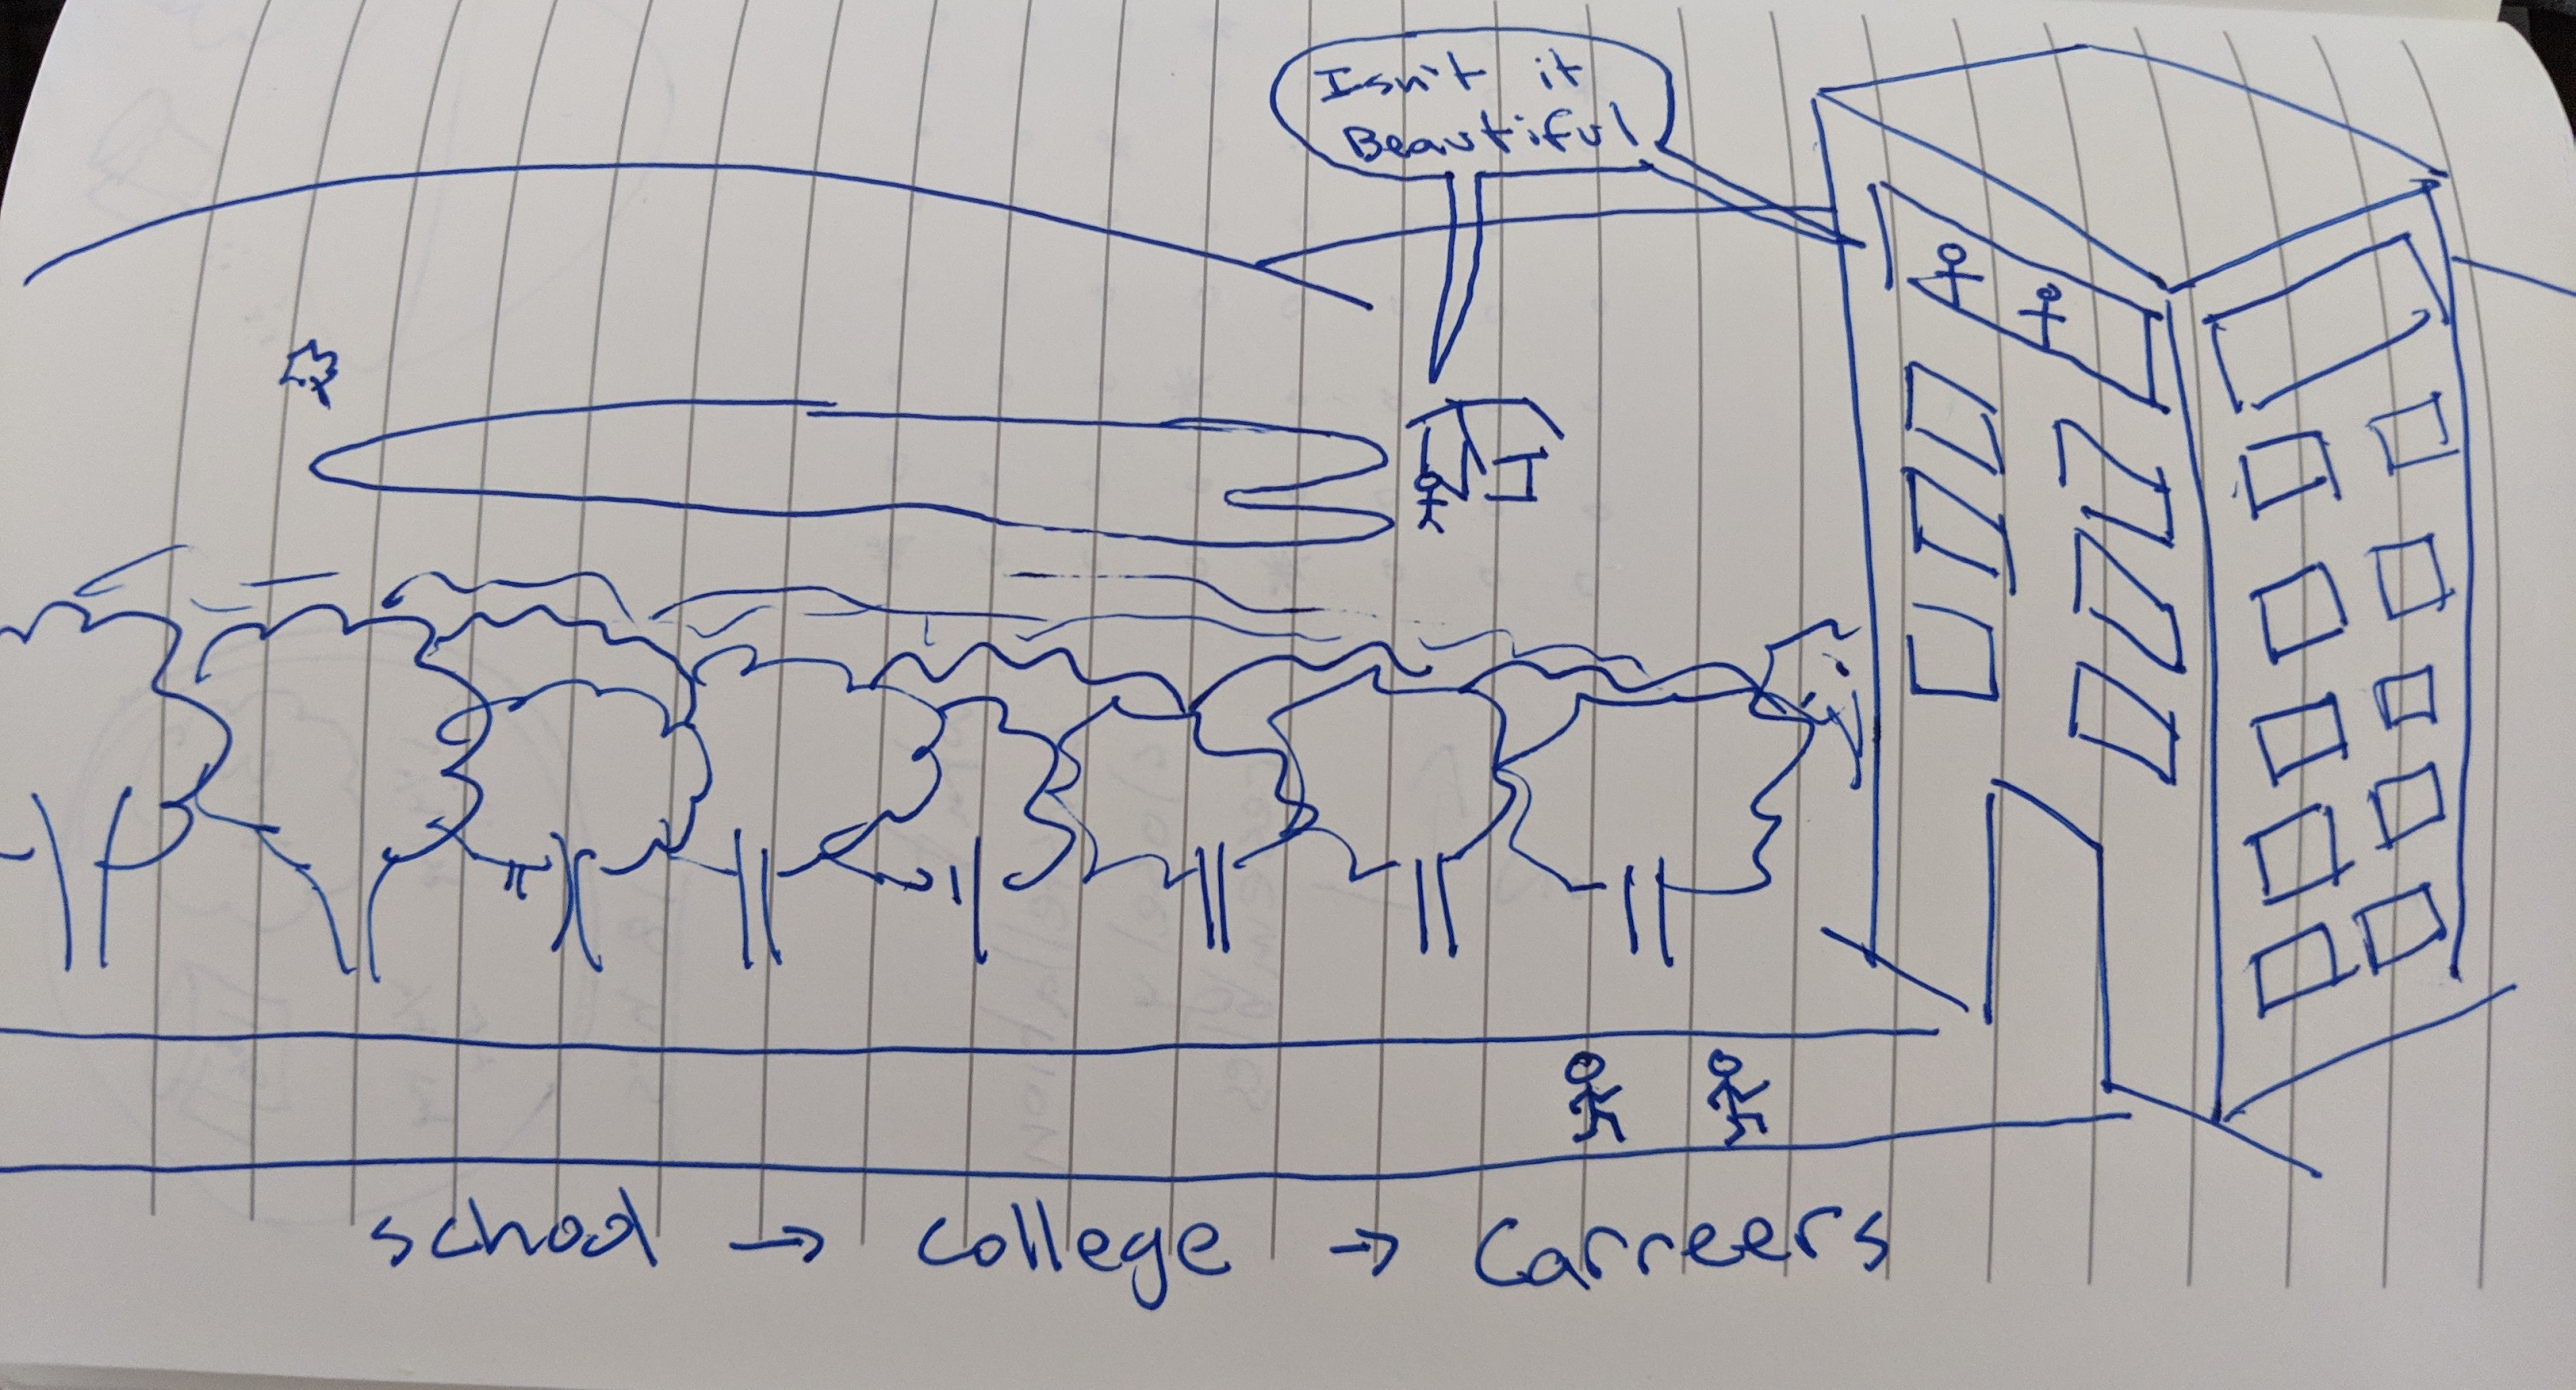 Isn't it
Beautiful
school → college → Carreers